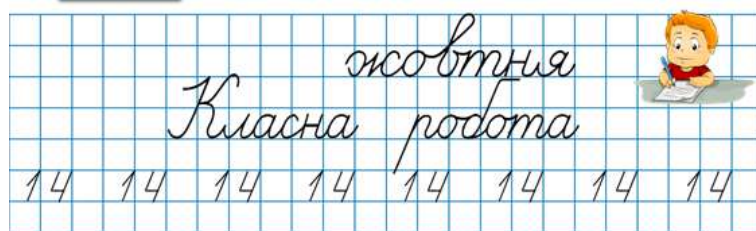 жовтня
Класна робота
14 14 14 14 14 14 14 14